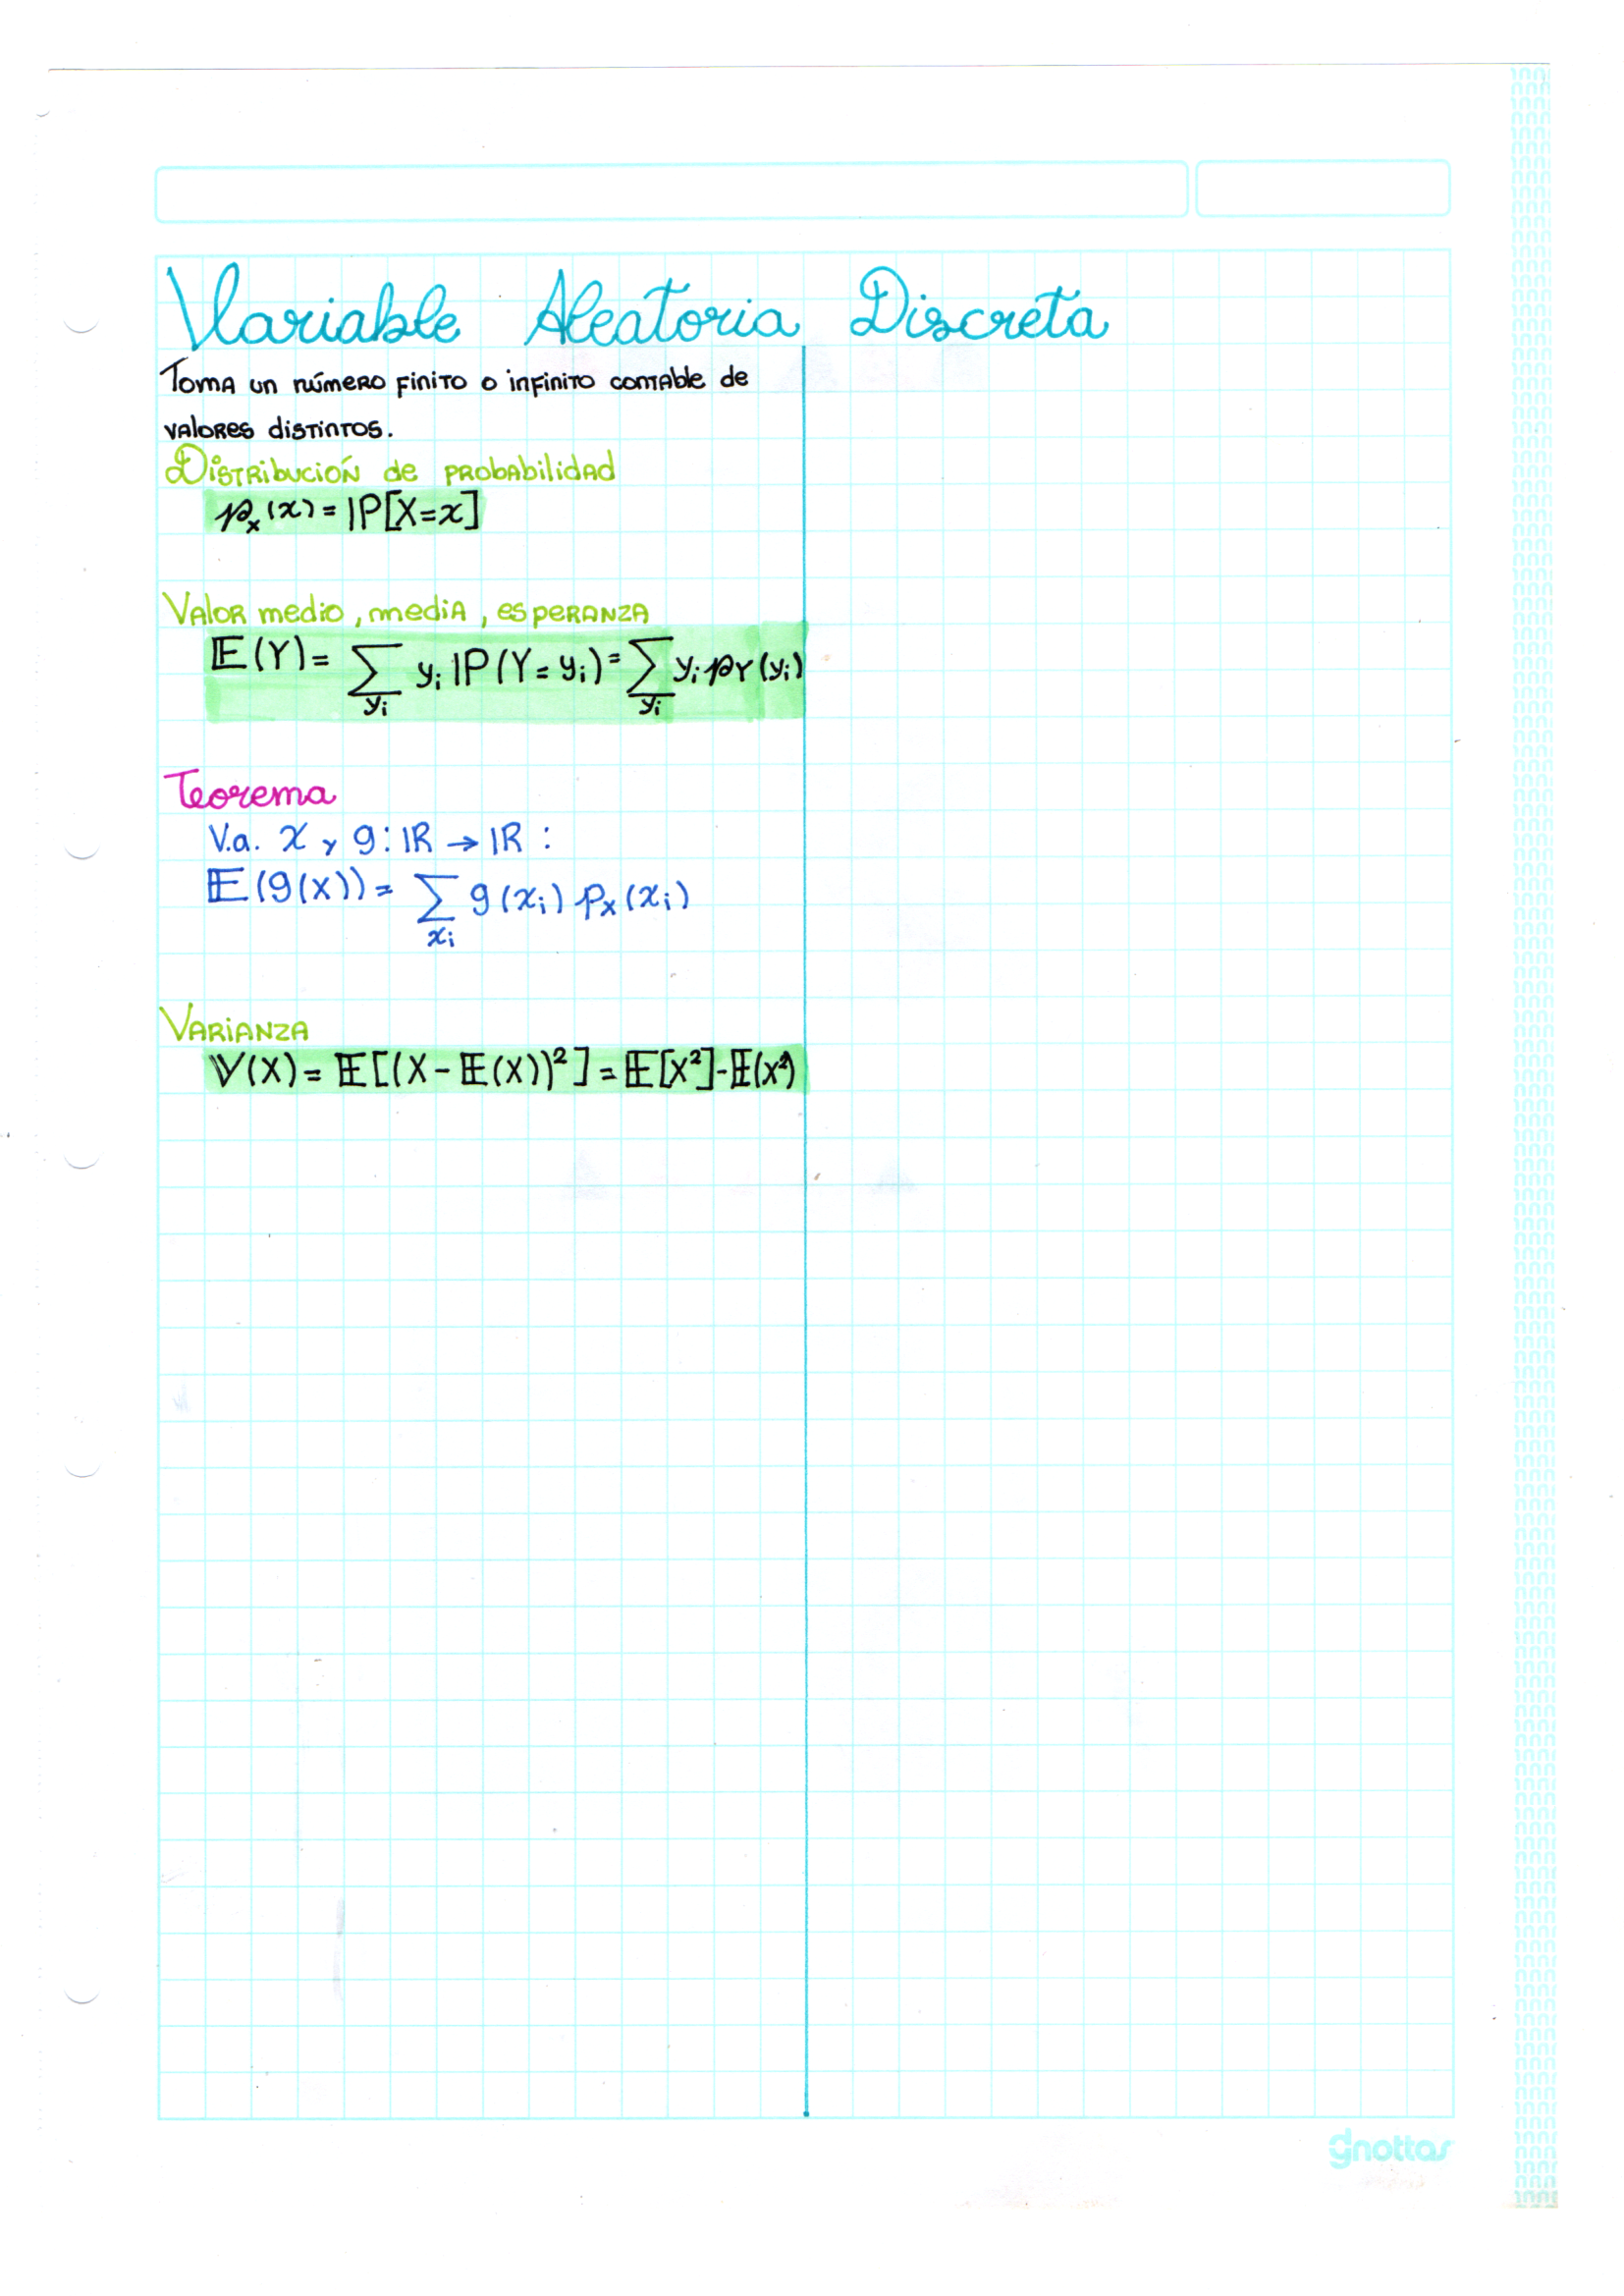 Variable Aleatoria Discreta
Toma un número finito o infinito contable de
valores distintos.
Distribución de probabilidad
pₓ(x) = ℙ[X=x]
Valor medio, media, esperanza
𝔼(Y) = ∑_{yᵢ} yᵢ ℙ(Y=yᵢ) = ∑_{yᵢ} yᵢ p_Y(yᵢ)
Teorema
V.a. X y g: ℝ → ℝ :
𝔼(g(x)) = ∑_{xᵢ} g(xᵢ) pₓ(xᵢ)
Varianza
𝕍(X) = 𝔼[(X - 𝔼(X))²] = 𝔼[X²] - 𝔼(x²)
gnottas